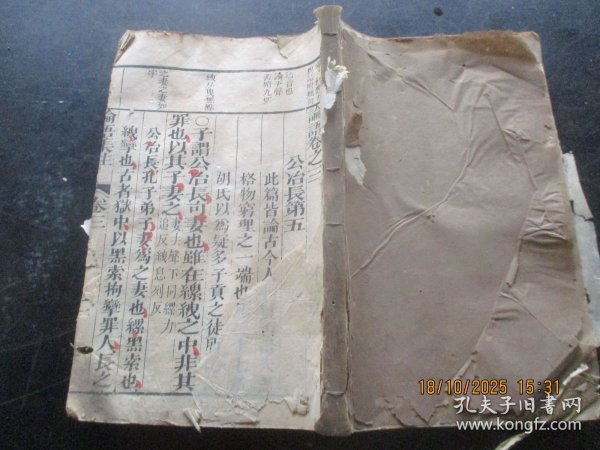 卷之三
公冶長第五
此篇皆論古今人
格物窮理之一端也
胡氏以為疑多子貢之徒所
〇子謂公冶長可妻也雖在縲絏之中非其
罪也以其子妻之妻去聲下同縲力追反絏息列反
公冶長孔子弟子妻為之妻也縲黑索也
絏攣也古者獄中以黑索拘攣罪人長之
卷三
18/10/2025 15:31
孔夫子旧书网
www.kongfz.com